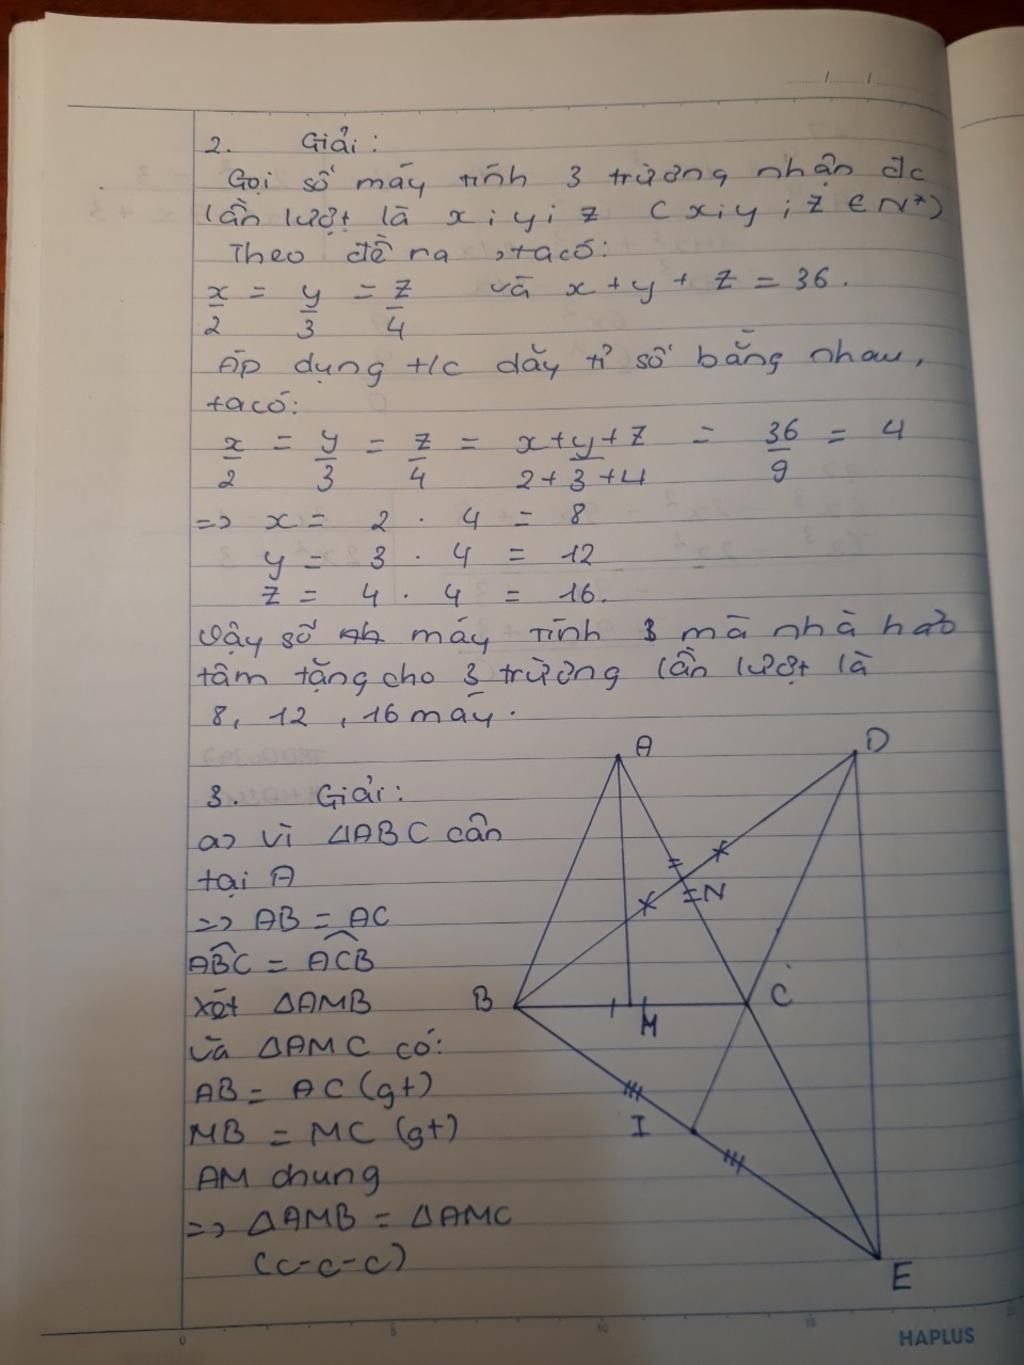 2. Giải:
Gọi số máy tính 3 trường nhận đc
lần lượt là x; y; z (x; y; z ∈ N*)
Theo đề ra, ta có:
x/2 = y/3 = z/4 và x + y + z = 36.
Áp dụng t/c dãy tỉ số bằng nhau,
ta có:
x/2 = y/3 = z/4 = x+y+z/2+3+4 = 36/9 = 4
=> x = 2 . 4 = 8
y = 3 . 4 = 12
z = 4 . 4 = 16.
Vậy số máy tính 3 mà nhà hảo
tâm tặng cho 3 trường lần lượt là
8, 12, 16 máy.
A
D
3. Giải:
a) Vì △ABC cân
tại A
N
=> AB = AC
ABC = ACB
B
M
C
Xét △AMB
và △AMC có:
AB = AC (gt)
I
MB = MC (gt)
AM chung
=> △AMB = △AMC
(c-c-c)
E
0 5 10 15
HAPLUS